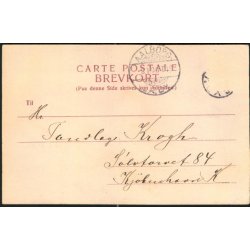 CARTE POSTALE
BREVKORT
(Paa denne Side skrives kun Adressen.)
AALBORG
Til
Hr.
Tandlæge Krogh
Sølvtorvet 84
Kjøbenhavn K